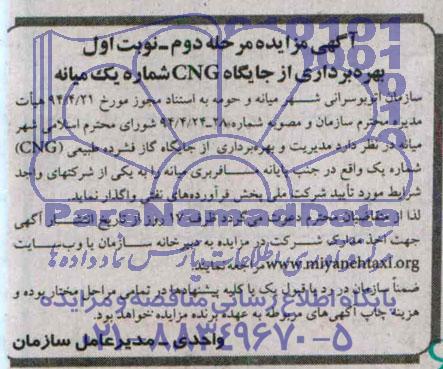 آگهی مزایده مرحله دوم ـ نوبت اول
بهره‌برداری از جایگاه CNG شماره یک میانه
سازمان اتوبوسرانی شهر میانه و حومه به استناد مجوز مورخ ۹۴/۴/۲۱ هیأت
مدیره محترم سازمان و مصوبه شماره ۲۸-۹۴/۴/۲۴ شورای محترم اسلامی شهر
میانه در نظر دارد مدیریت و بهره‌برداری از جایگاه گاز فشرده طبیعی (CNG)
شماره یک واقع در جنب پایانه مسافربری میانه را به یکی از شرکتهای واجد
شرایط مورد تأیید شرکت ملی پخش فرآورده‌های نفتی واگذار نماید.
لذا از متقاضیان محترم دعوت می‌گردد ظرف ۱۷ روز از تاریخ انتشار آگهی
جهت اخذ مدارک شرکت در مزایده به دبیرخانه سازمان یا وب سایت
www.miyanehtaxi.org مراجعه نمایند.
ضمناً سازمان در رد یا قبول یک یا کلیه پیشنهادها در تمامی مراحل مختار بوده و
هزینه چاپ آگهی‌های مربوطه به عهده برنده مزایده خواهد بود.
واحدی ـ مدیرعامل سازمان
ParsNamadData
پایگاه اطلاع رسانی مناقصه و مزایده
۰۲۱-۸۸۳۴۹۶۷۰-۵